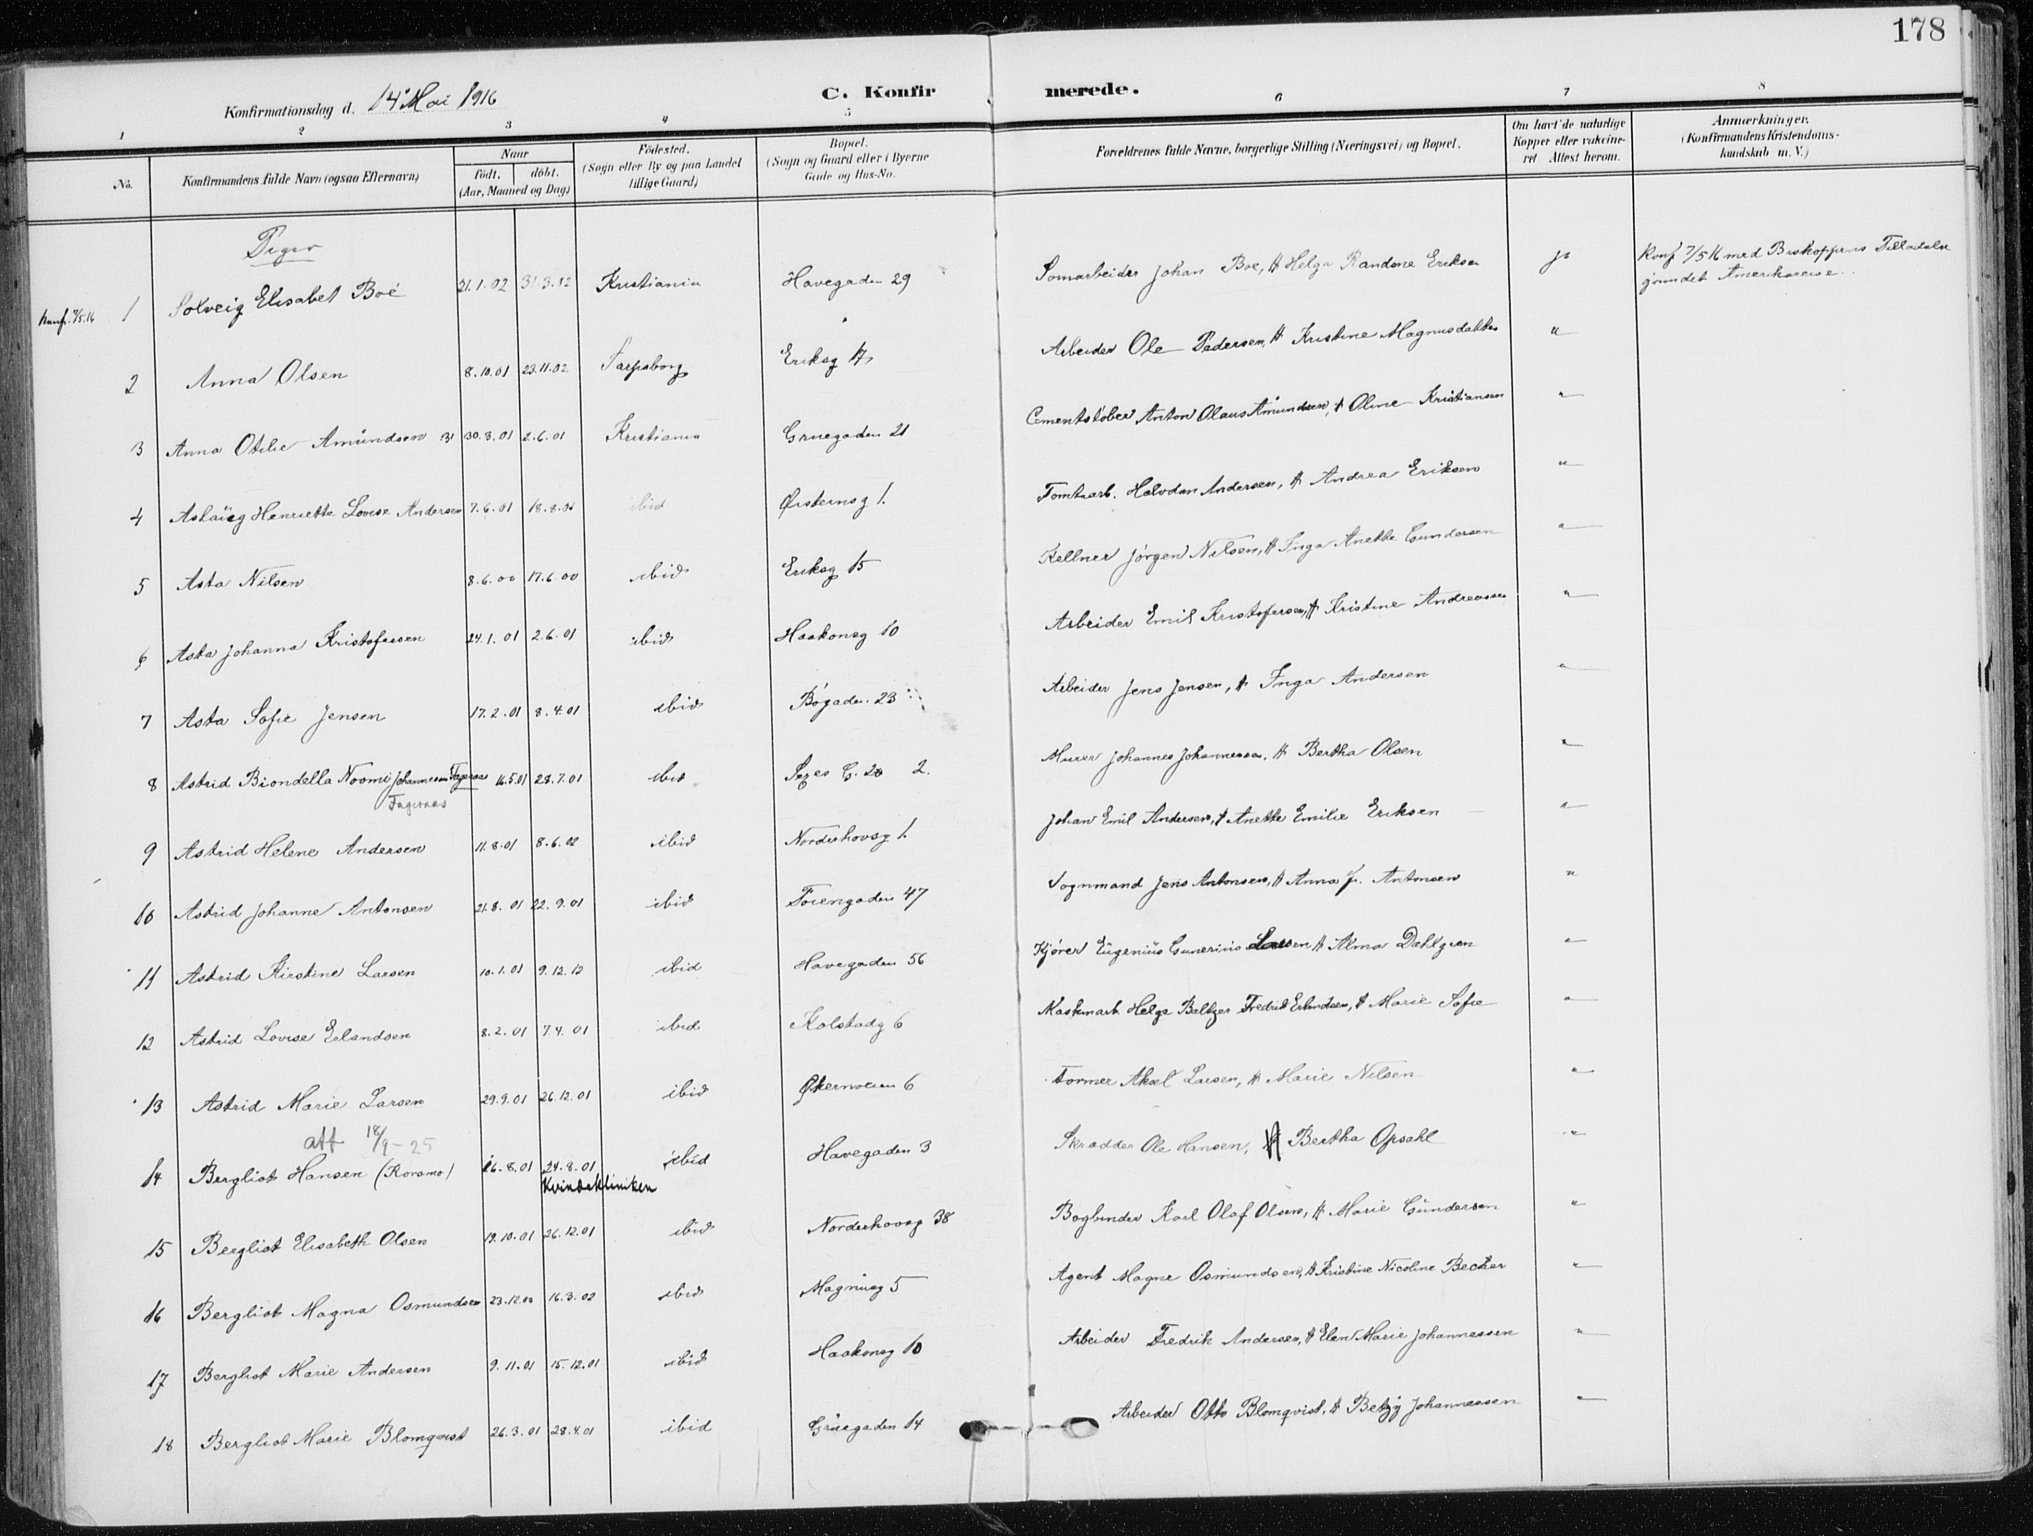 178
Konfirmationsdag d. 14' Mai 1916
C. Konfirmerede.
1 2 3 4 5 6 7 8
No. Konfirmandens fulde Navn (ogsaa Efternavn)
Naar
født. døbt.
(Aar, Maaned og Dag)
Fødested.
(Sogn eller By og paa Landet
tillige Gaard)
Bopæl.
(Sogn og Gaard eller i Byerne
Gade og Hus-No.
Forældrenes fulde Navne, borgerlige Stilling (Næringsvei) og Bopæl.
Om havt de naturlige
Kopper eller vakcine-
ret Attest herom.
Anmærkninger.
(Konfirmandens Kristendoms-
kundskab m. V.)
Piger
Konf. 7/5.16 1 Solveig Elisabet Boe 21.1.02 31.3.12 Kristiania Havegaden 29 Somarbeider Johan Boe, & Helga Randine Eriksen ja Konf 7/5 16 med Biskoppens Tilladelse
grundet Amerikareise.
2 Anna Olsen 8.10.01 23.11.02 Sarpsborg Eriksg 17 Arbeider Ole Pedersen, & Kristine Magnusdatter "
3 Anna Otilie Amundsen 31 30.3.01 2.6.01 Kristiania Gruegaden 21 Cementstøber Anton Olaus Amundsen, & Oline Kristiansen "
4 Aslaug Henriette Lovise Andersen 7.6.01 18.8.01 ibid Østensg 1. Tomtearb. Halvdan Andersen, & Andrea Eriksen "
5 Asta Nilsen 8.6.00 17.6.00 ibid Eriksg 15 Kellner Jørgen Nilsen, & Inga Anette Gundersen "
6 Asta Johanna Kristofersen 24.1.01 2.6.01 ibid Haakonsg 10 Arbeider Emil Kristofersen, & Kristine Andreassen "
7 Asta Sofie Jensen 17.2.01 8.4.01 ibid Bøgaden 23 Arbeider Jens Jensen, & Inga Andersen "
8 Astrid Biondella Noomi Johannesen Fageraas 16.5.01 28.7.01 ibid G. 20 2. Murer Johannes Johannessen, & Bertha Olsen "
Fageraas
9 Astrid Helene Andersen 11.8.01 8.6.02 ibid Norderhovsg 1. Johan Emil Andersen, & Anette Emilie Eriksen "
10 Astrid Johanne Antonsen 21.8.01 22.9.01 ibid Tøiengaden 47 Vognmand Jens Antonsen, & Anna J. Antonsen "
11 Astrid Kirstine Larsen 10.1.01 9.12.12 ibid Havegaden 56 Kjører Eugenius Gunerius Larsen & Alma Dahlgren "
12 Astrid Lovise Erlandsen 8.2.01 7.4.01 ibid Kolstadg 6 Maskinarb. Helge Baltzer Fredrik Erlandsen, & Marie Sofie "
13 Astrid Marie Larsen 29.9.01 26.12.01 ibid Økernveien 6 Former Aksel Larsen, & Marie Nilsen "
att 18/9-25
14 Bergliot Hansen (Rorsmo) 16.8.01 24.8.01 ibid Havegaden 3 Skrædder Ole Hansen, & Bertha Opsahl "
Kvindekliniken
15 Bergliot Elisabeth Olsen 19.10.01 26.12.01 ibid Norderhovsg 38 Bogbinder Karl Olaf Olsen, & Marie Gundersen "
16 Bergliot Magna Osmundsen 23.12.00 16.3.02 ibid Magnusg 5 Agent Magne Osmundsen, & Kristine Nicoline Becker "
17 Bergliot Marie Andersen 9.11.01 15.12.01 ibid Haakonsg 10 Arbeider Fredrik Andersen, & Elen Marie Johannessen "
18 Bergliot Marie Blomqvist 26.3.01 28.4.01 ibid Gruegaden 14 Arbeider Otto Blomqvist, & Betzy Johannessen "